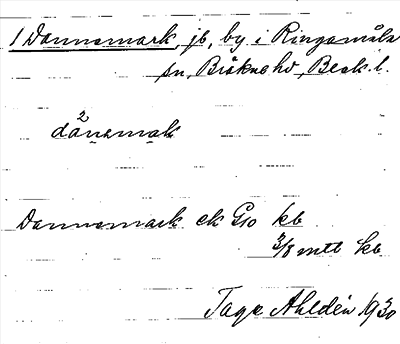 1 Dannemark, jb, by i Ringamåla
sn, Bräkne hd, Blek. l.
2
dánemak
Dannemark ek G10 kb
3/8 mtl kb
Tage Ahldén 1930